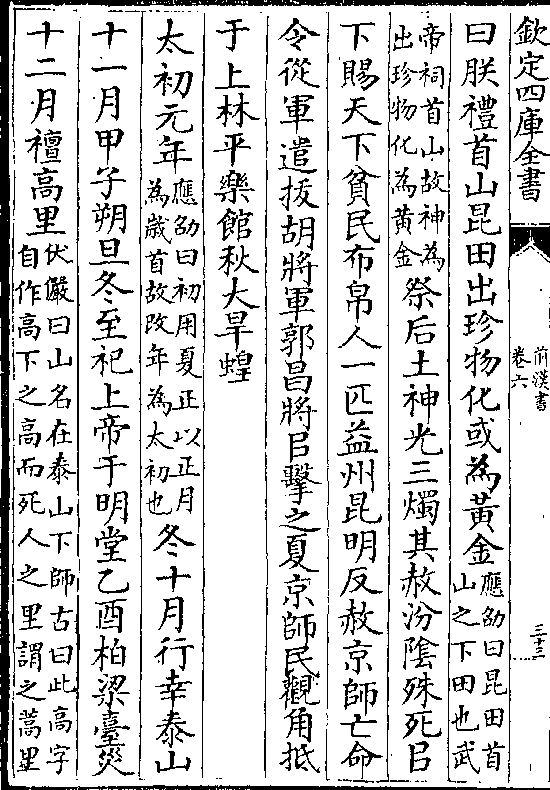 欽定四庫全書
前漢書
卷六
三十三
曰朕禮首山昆田出珍物化或為黃金應劭曰昆田首山之下田也武
帝祠首山故神為出珍物化為黃金祭后土神光三燭其赦汾隂殊死㠯
下賜天下貧民布帛人一匹益州昆明反赦京師亡命
令從軍遣拔胡將軍郭昌將㠯擊之夏京師民觀角抵
于上林平樂館秋大旱蝗
太初元年應劭曰初用夏正以正月為嵗首故改年為太初也冬十月行幸泰山
十一月甲子朔旦冬至祀上帝于明堂乙酉柏梁臺災
十二月禮高里伏儼曰山名在泰山下師古曰此高字自作高下之高而死人之里謂之蒿里